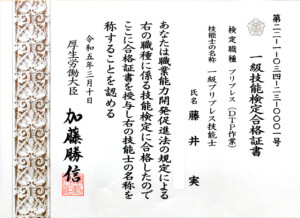 第二二-一-〇三四-二三-〇〇〇一号
一級技能検定合格証書
検定職種 プリプレス（ＤＴＰ作業）
技能士の名称 一級プリプレス技能士
氏名 藤井 実
あなたは職業能力開発促進法の規定による
右の職種に係る技能検定に合格したので
ここに合格証書を授与し右の技能士の名称を
称することを認める
令和五年三月十日
厚生労働大臣 加藤勝信